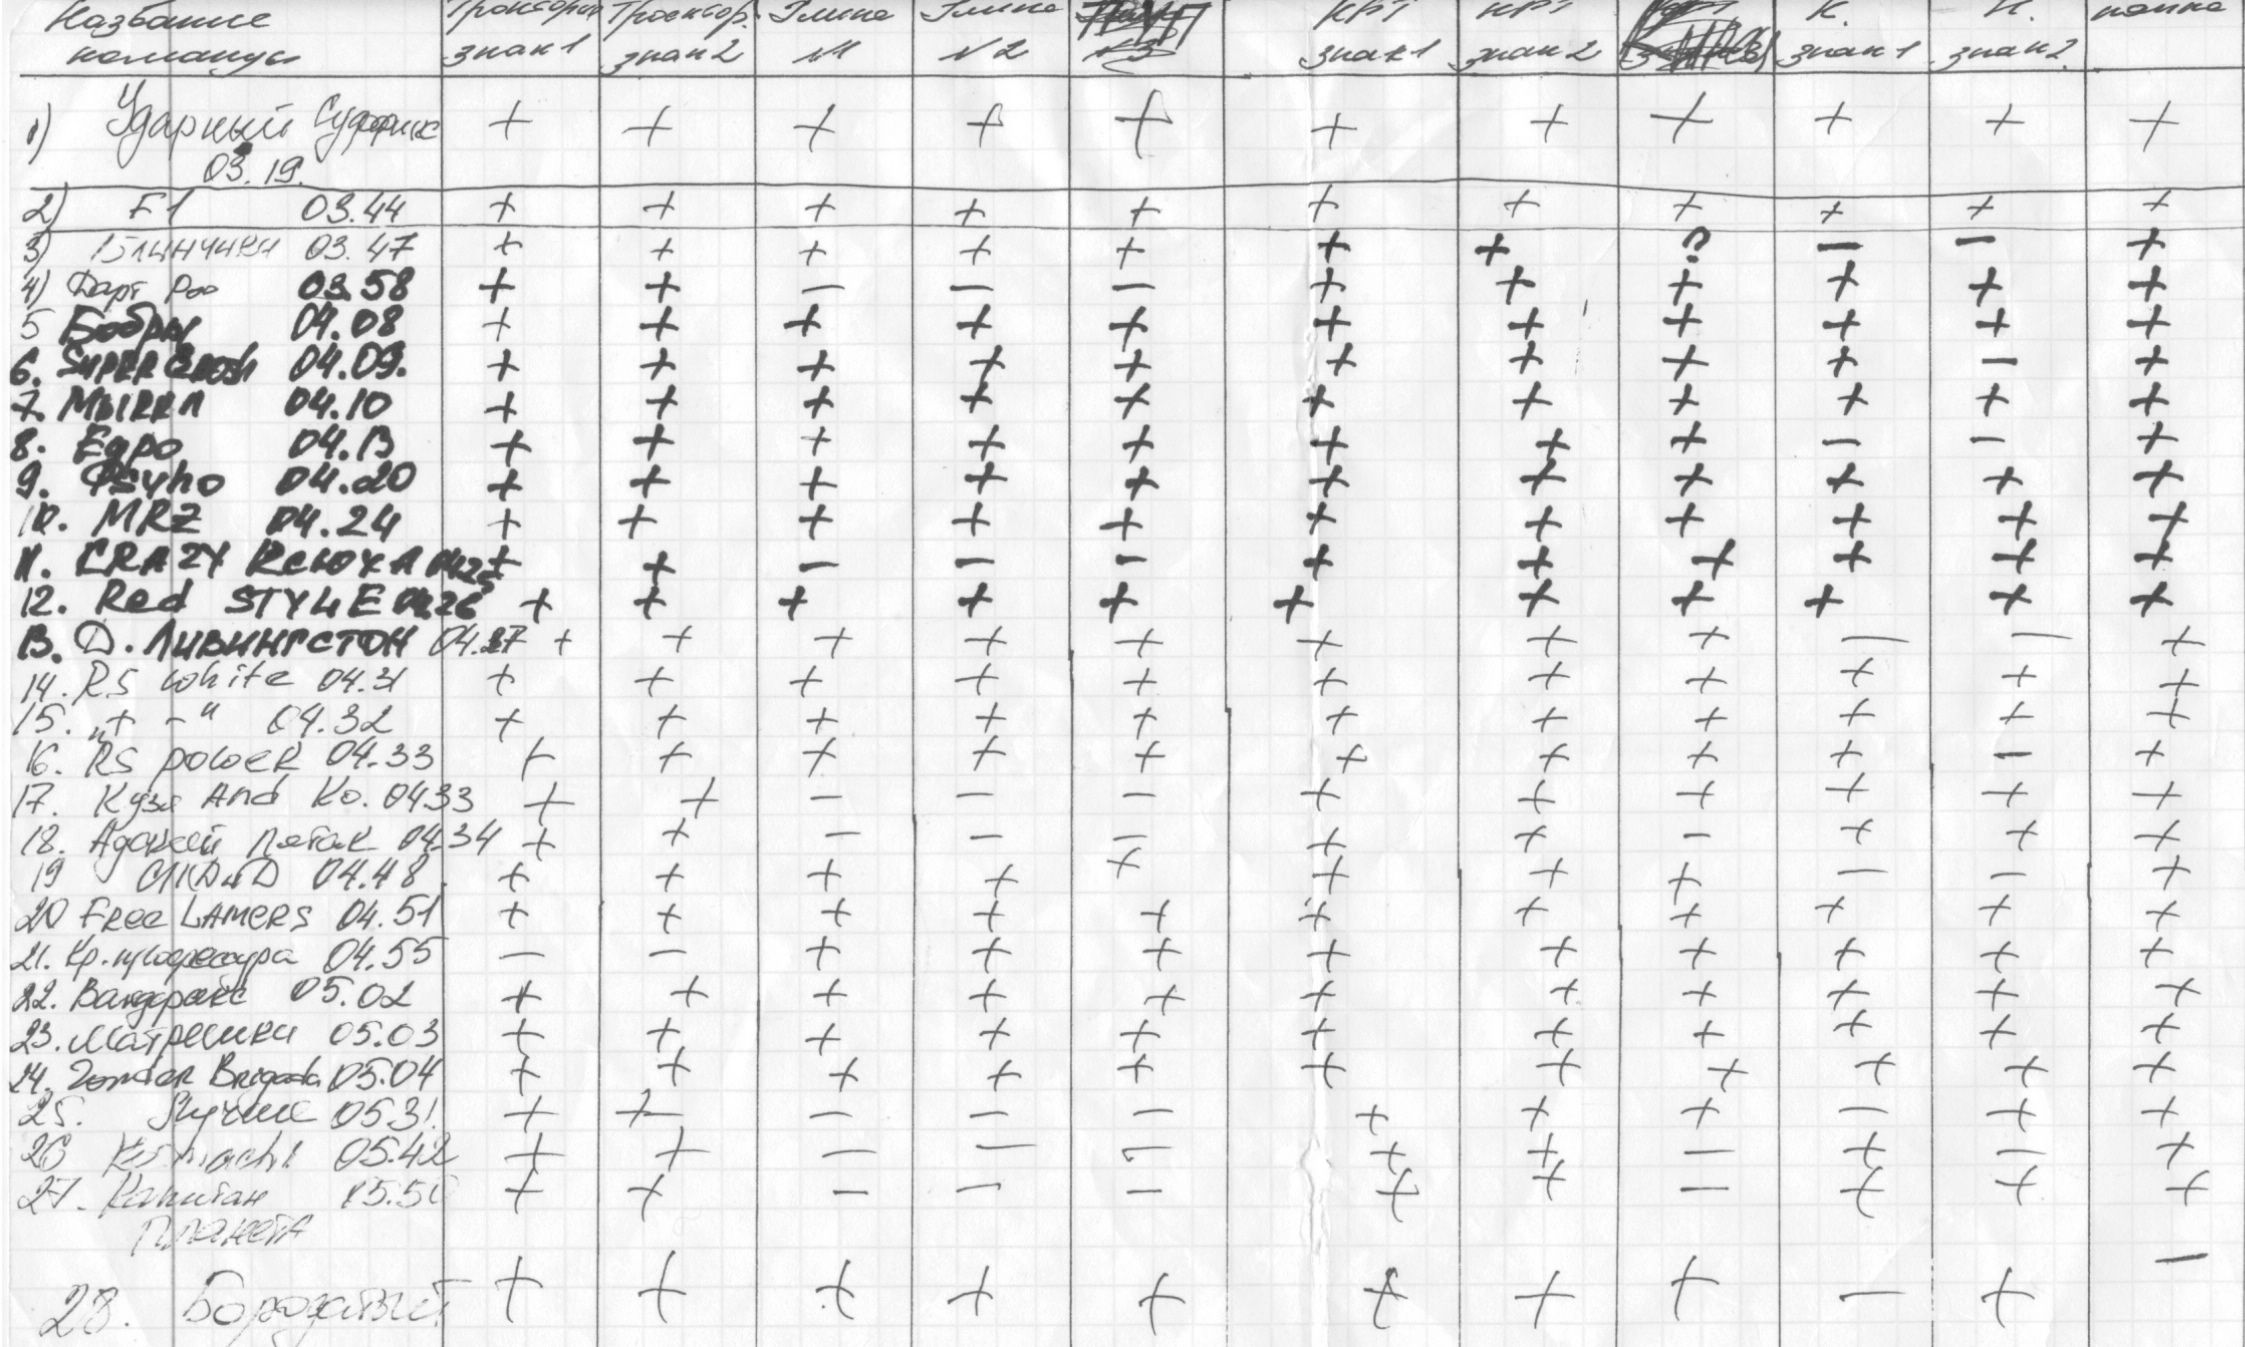 Название команды знак1 знак2 Глина №1 Глина №2 КРТ знак1 КРТ знак2 К. знак1 К. знак2 папка
1) Ударный Суффикс 03.19. + + + + + + + + + + +
2) F1 03.44 + + + + + + + + + + +
3) Блинчики 03.47 + + + + + + + ? – – +
4) Дарт Роо 03.58 + + – – – + + + + + +
5 Бобры 04.08 + + + + + + + + + + +
6. SUPER 04.09. + + + + + + + + + – +
7. 04.10 + + + + + + + + + + +
8. Едро 04.13 + + + + + + + + – – +
9. Psyho 04.20 + + + + + + + + + + +
10. MRZ 04.24 + + + + + + + + + + +
11. CRAZY КСЮХА 04.25 + + – – – + + + + + +
12. Red STYLE 04.26 + + + + + + + + + + +
13. Д. ЛИВИНГСТОН 04.27 + + + + + + + + – – +
14. RS white 04.31 + + + + + + + + + + +
15. „+ -“ 04.32 + + + + + + + + + + +
16. RS poweR 04.33 + + + + + + + + + – +
17. Кузя And Ko. 04.33 + + – – – + + + + + +
18. Адский пятак 04.34 + + – – – + + – + + +
19 04.48 + + + + + + + + – – +
20 FRee LAMERS 04.51 + + + + + + + + + + +
21. Кр. 04.55 – – + + + + + + + + +
22. 05.02 + + + + + + + + + + +
23. Матрешки 05.03 + + + + + + + + + + +
24. ZondeR Brigada 05.04 + + + + + + + + + + +
25. Лучшие 05.31. + + – – – + + + – + +
26 05.42 + + – – – + + – + – +
27. Капитан + + – – – + + – + + +
Планета
28. Бородатый + + + + + + + + – + –